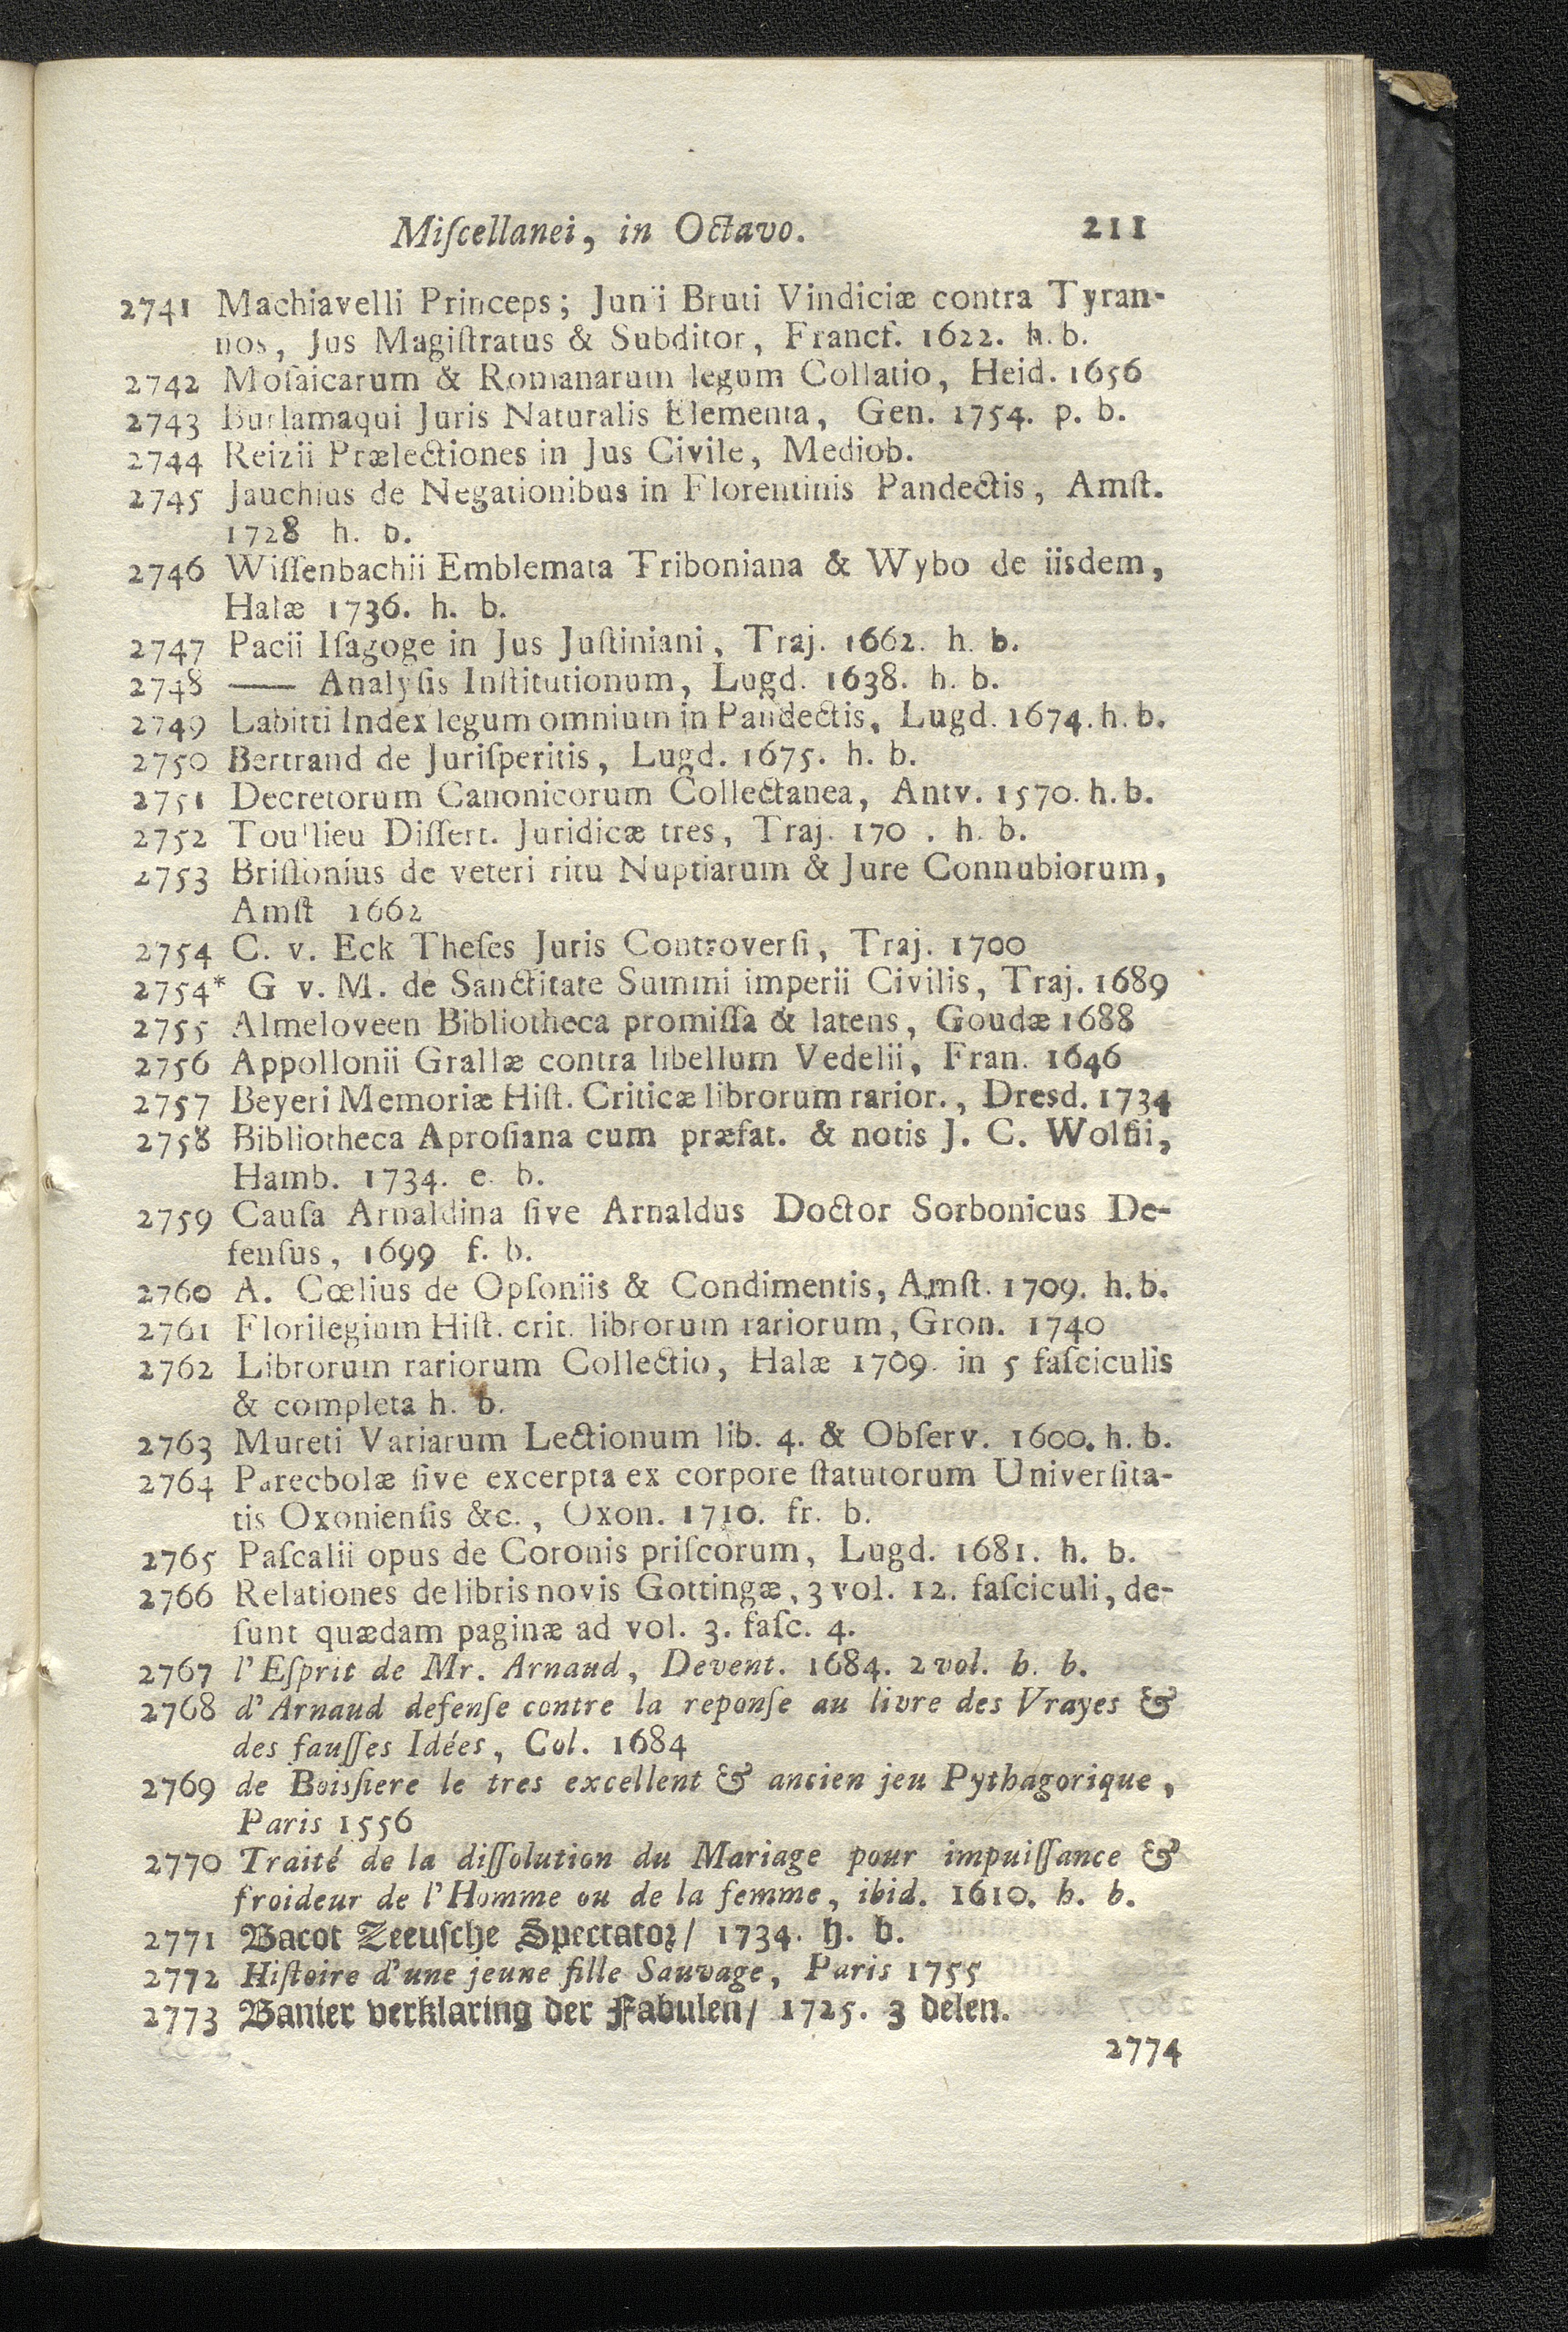 Miſcellanei, in Octavo. 211
2741 Machiavelli Princeps; Junii Bruti Vindiciæ contra Tyran-
nos, Jus Magiſtratus & Subditor, Francf. 1622. h. b.
2742 Moſaicarum & Romanarum legum Collatio, Heid. 1656
2743 Burlamaqui Juris Naturalis Elementa, Gen. 1754. p. b.
2744 Reizii Prælectiones in Jus Civile, Mediob.
2745 Jauchius de Negationibus in Florentinis Pandectis, Amſt.
1728 h. b.
2746 Wiſſenbachii Emblemata Triboniana & Wybo de iisdem,
Halæ 1736. h. b.
2747 Pacii Iſagoge in Jus Juſtiniani, Traj. 1662. h. b.
2748 —— Analyſis Inſtitutionum, Lugd. 1638. h. b.
2749 Labitti Index legum omnium in Pandectis, Lugd. 1674. h. b.
2750 Bertrand de Juriſperitis, Lugd. 1675. h. b.
2751 Decretorum Canonicorum Collectanea, Antv. 1570. h. b.
2752 Toullieu Diſſert. Juridicæ tres, Traj. 170 . h. b.
2753 Briſſonius de veteri ritu Nuptiarum & Jure Connubiorum,
Amſt 1662
2754 C. v. Eck Theſes Juris Controverſi, Traj. 1700
2754* G v. M. de Sanctitate Summi imperii Civilis, Traj. 1689
2755 Almeloveen Bibliotheca promiſſa & latens, Goudæ 1688
2756 Appollonii Grallæ contra libellum Vedelii, Fran. 1646
2757 Beyeri Memoriæ Hiſt. Criticæ librorum rarior., Dresd. 1734
2758 Bibliotheca Aproſiana cum præfat. & notis J. C. Wolfii,
Hamb. 1734. e. b.
2759 Cauſa Arnaldina ſive Arnaldus Doctor Sorbonicus De-
fenſus, 1699 f. b.
2760 A. Cœlius de Opſoniis & Condimentis, Amſt. 1709. h. b.
2761 Florilegium Hiſt. crit. librorum rariorum, Gron. 1740
2762 Librorum rariorum Collectio, Halæ 1709. in 5 faſciculis
& completa h. b.
2763 Mureti Variarum Lectionum lib. 4. & Obſerv. 1600. h. b.
2764 Parecbolæ ſive excerpta ex corpore ſtatutorum Univerſita-
tis Oxonienſis &c., Oxon. 1710. fr. b.
2765 Paſcalii opus de Coronis priſcorum, Lugd. 1681. h. b.
2766 Relationes de libris novis Gottingæ, 3 vol. 12. faſciculi, de-
ſunt quædam paginæ ad vol. 3. faſc. 4.
2767 l'Eſprit de Mr. Arnaud, Devent. 1684. 2 vol. h. b.
2768 d'Arnaud defenſe contre la reponſe au livre des Vrayes &
des fauſſes Idées, Col. 1684
2769 de Boisſiere le tres excellent & ancien jeu Pythagorique,
Paris 1556
2770 Traité de la diſſolution du Mariage pour impuiſſance &
froideur de l'Homme ou de la femme, ibid. 1610. h. b.
2771 Bacot Zeeuſche Spectator/ 1734. h. b.
2772 Hiſtoire d'une jeune fille Sauvage, Paris 1755
2773 Banier verklaring der Fabulen/ 1725. 3 delen.
2774